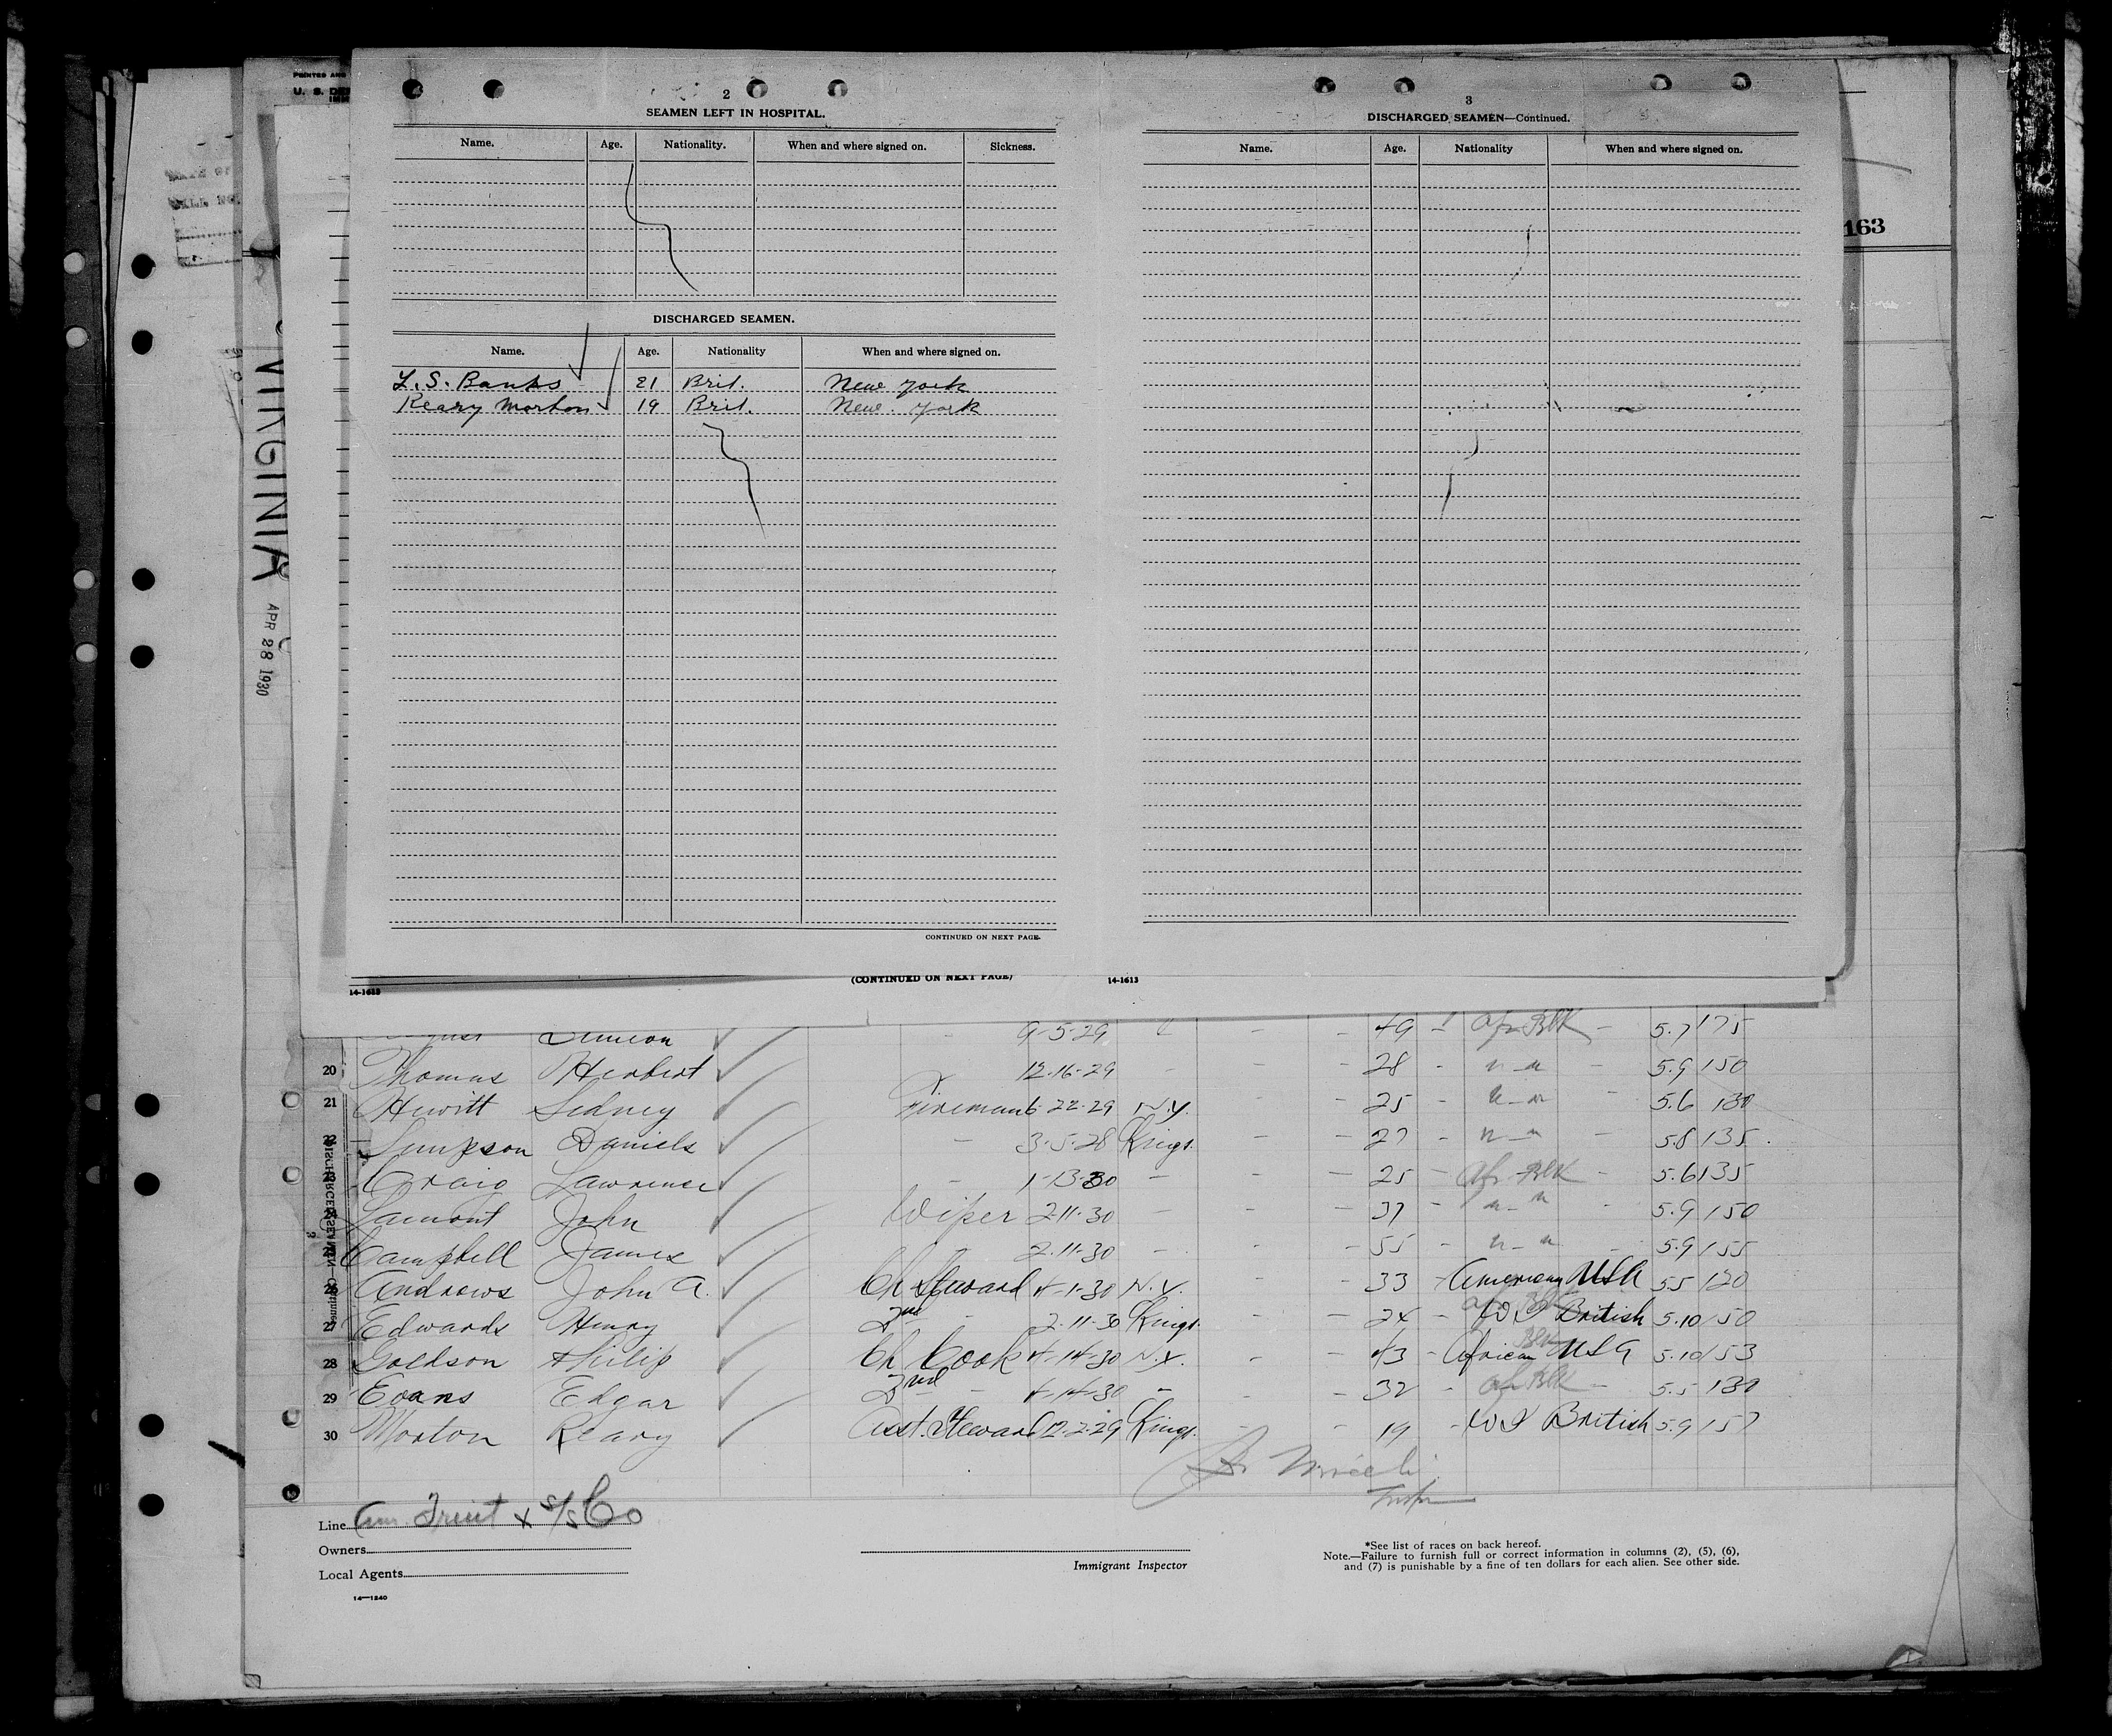 PRINTED AND
U. S. DE
163
VIRGINIA APR 28 1930
2
SEAMEN LEFT IN HOSPITAL.
Name. Age. Nationality. When and where signed on. Sickness.
DISCHARGED SEAMEN.
Name. Age. Nationality When and where signed on.
L. S. Banks 21 Brit. New York
Reary Morton 19 Brit. New York
CONTINUED ON NEXT PAGE.
3
DISCHARGED SEAMEN—Continued.
Name. Age. Nationality When and where signed on.
(CONTINUED ON NEXT PAGE) 14-1613
Simeon 9-5-29 49 Afr Blk 5.7 175
20 Thomas Herbert 12-16-29 28 " - " 5.9 150
21 Hewitt Sidney Fireman 6-22-29 N.Y. 25 " - " 5.6 130
Simpson Daniels 3-5-28 Kings. 27 " - " 5.8 135
Craig Lawrence 1-13-30 25 Afr Blk 5.6 135
24 Lamont John Wiper 2-11-30 37 " - " 5.9 150
Campbell James 2-11-30 55 " - " 5.9 155
26 Andrews John A. Ch Steward 4-1-30 N.Y. 33 American USA 5.5 120
27 Edwards Henry 2nd 2-11-30 Kings. 24 Afr Blk W I British 5.10 150
28 Goldson Philip Ch Cook 4-14-30 N.Y. 43 African Blk USA 5.10 153
29 Evans Edgar 2nd 4-14-30 32 Afr Blk 5.5 130
30 Morton Reary Asst. Steward 12-2-29 Kings. 19 W I British 5.9 157
Line Am. Fruit & S/S Co
Owners
Local Agents
14—1240
Immigrant Inspector
*See list of races on back hereof.
Note.—Failure to furnish full or correct information in columns (2), (5), (6),
and (7) is punishable by a fine of ten dollars for each alien. See other side.